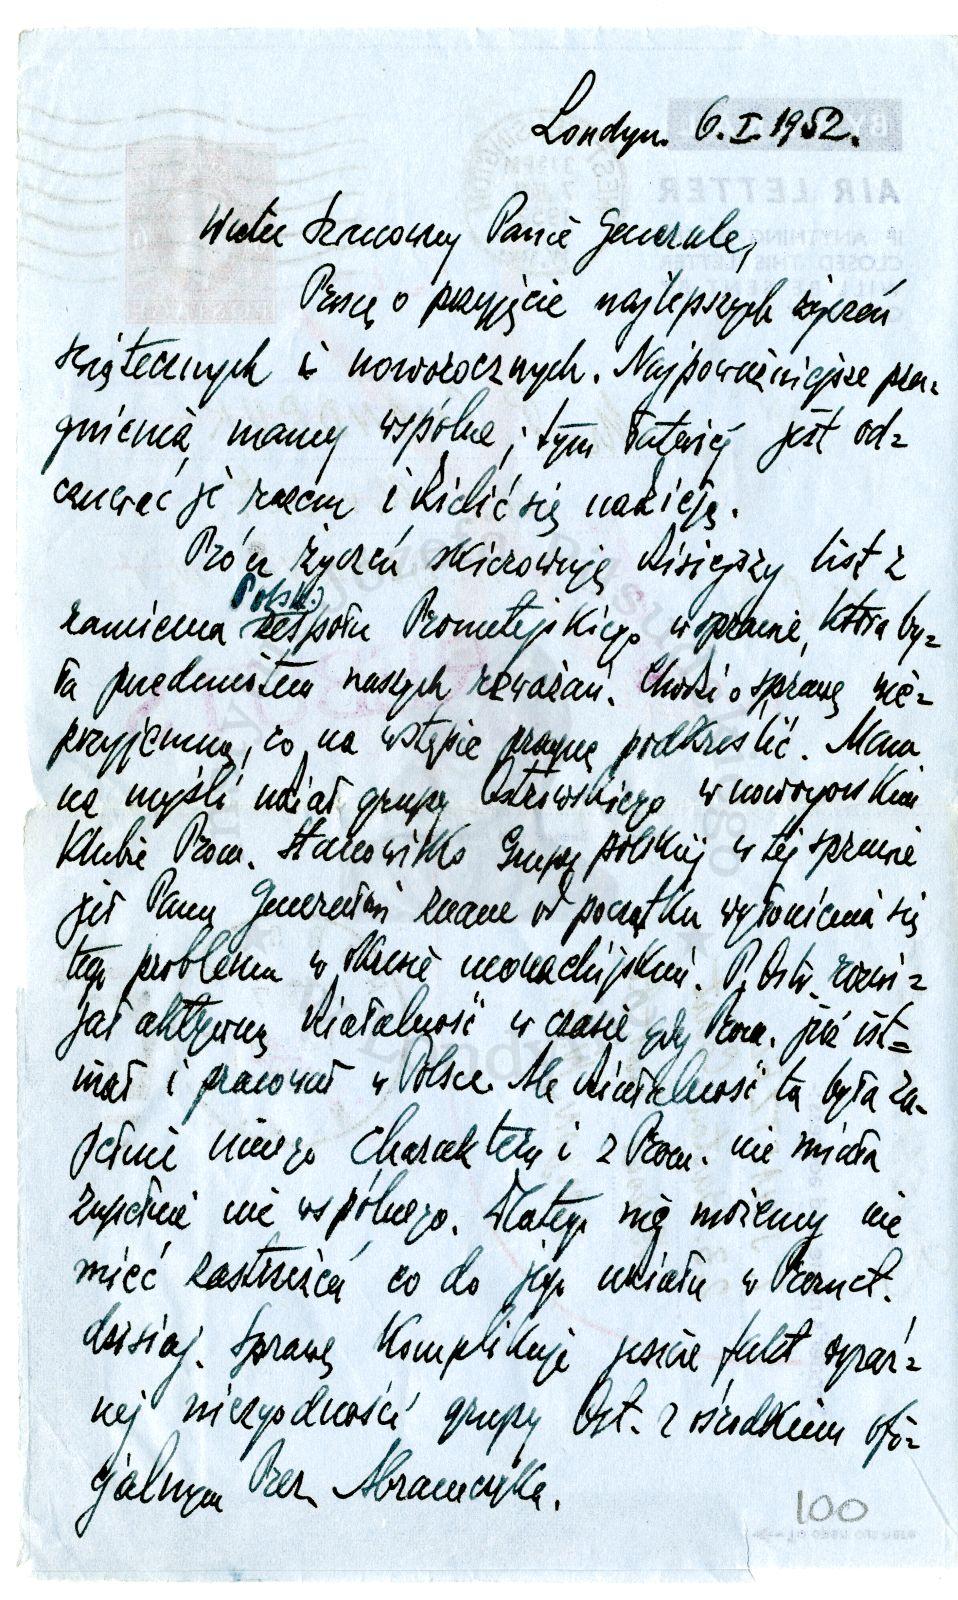 Londyn. 6.I.1952.
Wielce Szanowny Panie Generale,
Proszę o przyjęcie najlepszych życzeń
świątecznych i noworocznych. Najpoważniejsze pra-
gnienia mamy wspólne; tym łatwiej jest od-
czuwać je razem i dzielić się nadzieją.
Prócz życzeń skierowuję dzisiejszy list z
Polsk.
ramienia zespołu Prometejskiego w sprawie, która by-
ła przedmiotem naszych rozważań. Chodzi o sprawę nie-
przyjemną, co na wstępie pragnę podkreślić. Mam
na myśli udział grupy Ostrowskiego w nowoyorskim
Klubie Prom. Stanowisko Grupy polskiej w tej sprawie
jest Panu Generałowi znane od początku wyłonienia się
tego problemu w okresie monachijskim. P. Ostr. rozwi-
jał aktywną działalność w czasie gdy Prom. już ist-
niał i pracował w Polsce. Ale działalność ta była zu-
pełnie innego charakteru i z Prom. nie miała
zupełnie nic wspólnego. Dlatego nie możemy nie
mieć zastrzeżeń co do jego udziału w Promet.
dzisiaj. Sprawę komplikuje jeszcze fakt wyraź-
nej niezgodności grupy Ost. z ośrodkiem ofi-
cjalnym Prez. Abramczyka.
100
AIR LETTER
IF ANYTHING